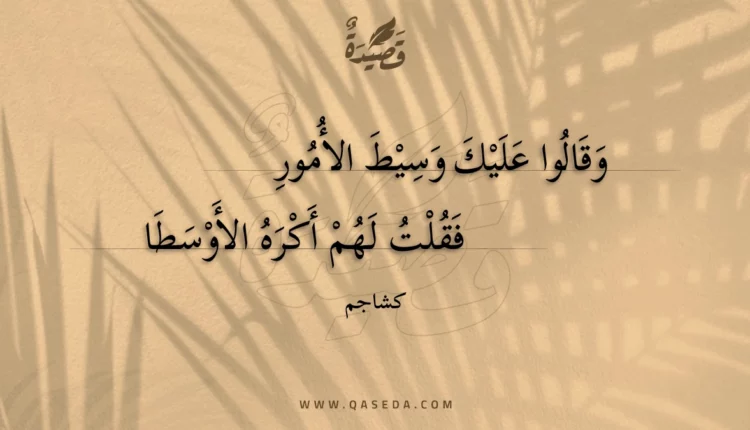 قَصِيْدَةٌ
وَقَالُوا عَلَيْكَ وَسِيْطَ الأُمُورِ
فَقُلْتُ لَهُمْ أَكْرَهُ الأَوْسَطَا
كشاجم
WWW.QASEDA.COM